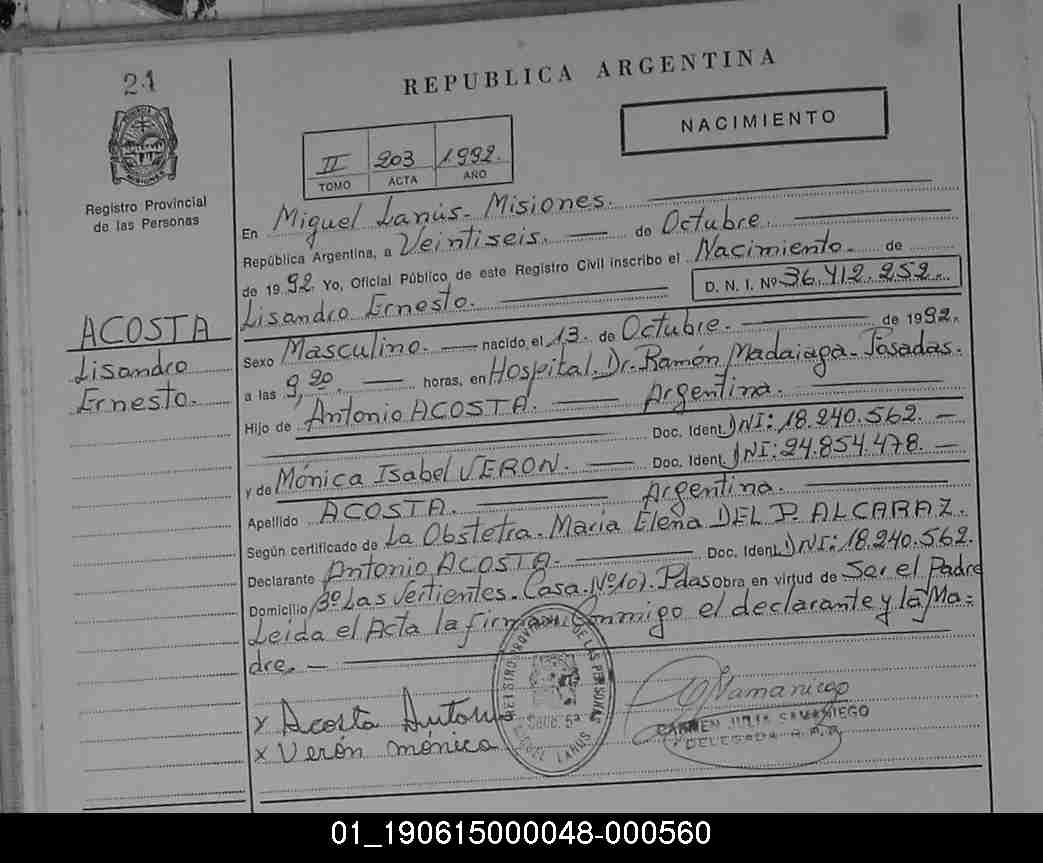 21
REPUBLICA ARGENTINA
NACIMIENTO
II 203 1992.
TOMO ACTA AÑO
Registro Provincial
de las Personas
En Miguel Lanús - Misiones.
República Argentina, a Veintiseis. de Octubre
de 1992. Yo, Oficial Público de este Registro Civil inscribo el Nacimiento. de
Lisandro Ernesto. D. N. I. Nº 36.412.252.
ACOSTA
Lisandro
Ernesto.
Sexo Masculino. nacido el 13. de Octubre. de 1992.
a las 9,20. horas, en Hospital. Dr. Ramón Madariaga - Posadas.
Hijo de Antonio ACOSTA. Argentina.
Doc. Ident. DNI: 18.240.562. —
y de Mónica Isabel VERON. Doc. Ident. DNI: 24.854.478. —
Apellido ACOSTA. Argentina.
Según certificado de La Obstetra. Maria Elena DEL P. ALCARAZ.
Declarante Antonio ACOSTA. Doc. Ident. DNI: 18.240.562.
Domicilio Bº Las Vertientes. Casa. Nº 107. Pdas Obra en virtud de Ser el Padre
Leida el Acta la firman Conmigo el declarante y la Ma=
dre. —
x Acosta Antonio
x Verón mónica
REGISTRO PROVINCIAL DE LAS PERSONAS
MIGUEL LANUS
Samaniego
CARMEN JULIA SAMANIEGO
DELEGADA R.P.P.
01_190615000048-000560